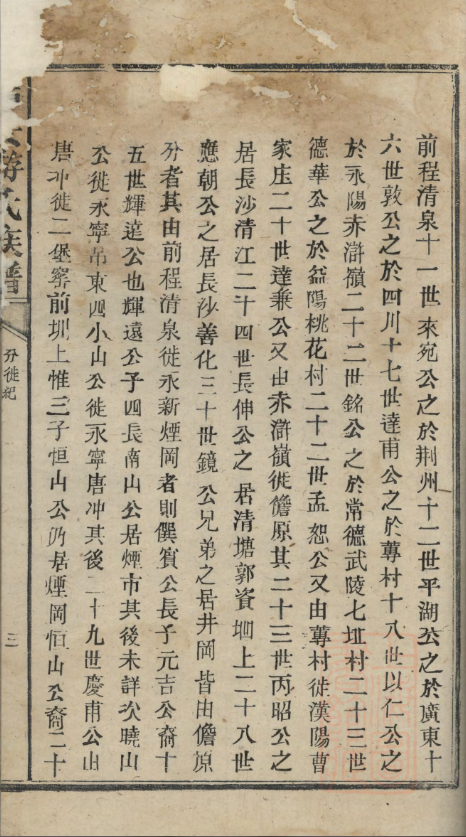 前程清泉十一世來宛公之於荆州十二世平湖公之於廣東十
六世敦公之於四川十七世達甫公之於蓴村十八世以仁公之
於永陽赤滸嶺二十二世銘公之於常德武陵七坵村二十三世
德華公之於益陽桃花村二十二世孟恕公又由蓴村徙漢陽曹
家庄二十世達兼公又由赤滸嶺徙儋原其二十三世丙昭公之
居長沙清江二十四世長伸公之居清塘郭資坳上二十八世
應朝公之居長沙善化三十世鏡公兄弟之居井岡皆由儋原
分者其由前程清泉徙永新煙岡者則僎賓公長子元吉公裔十
五世輝遠公也輝遠公子四長南山公居煙市其後未詳次曉山
公徙永寧吊東四小山公徙永寧唐冲其後二十九世慶甫公由
唐冲徙二堡寨前圳上惟三子恒山公仍居煙岡恒山公裔二十
游氏族譜
分徙紀
三